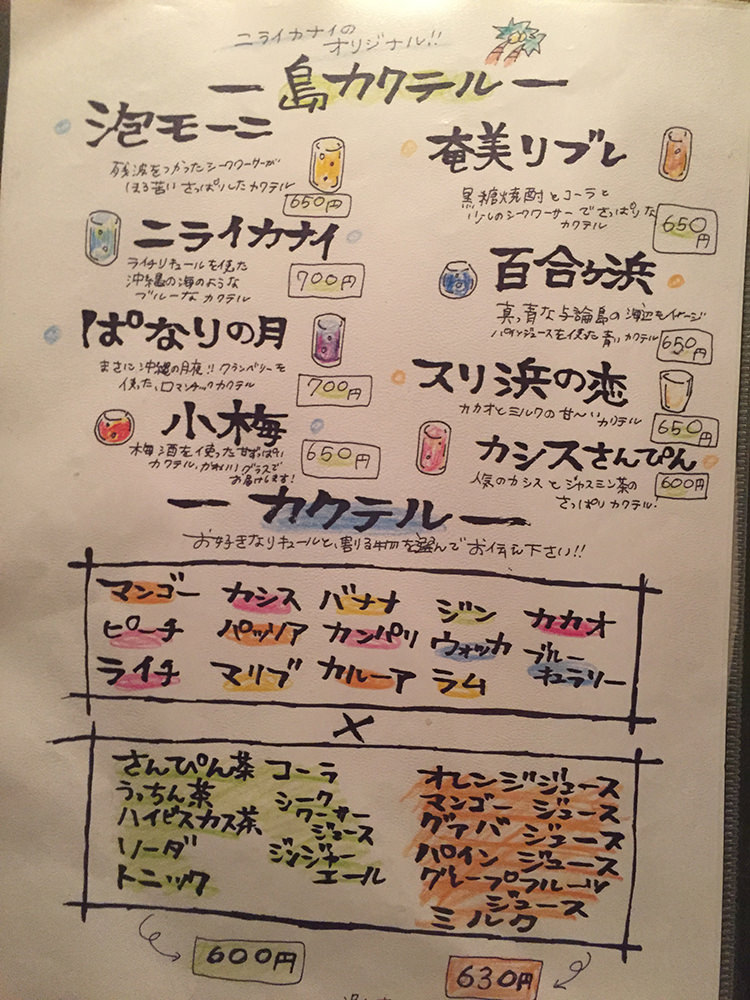 ニライカナイの
オリジナル!!
ー島カクテルー
泡モーニ
残波をつかったシークワーサーが
ほろ苦い さっぱりしたカクテル
650円
ニライカナイ
ライチリキュールを使った
沖縄の海のような
ブルーな カクテル
700円
ぱなりの月
まさに沖縄の月夜!! クランベリーを
使った、ロマンチックカクテル
700円
小梅
梅酒を使った甘ずっぱい
カクテル、かわいいグラスで
お届けします!
650円
奄美リブレ
黒糖焼酎とコーラと
少しのシークワーサーでさっぱりな
カクテル
650円
百合ヶ浜
真っ青な与論島の海辺をイメージ
パインジュースを使った青いカクテル
650円
スリ浜の恋
カカオとミルクの甘〜いカクテル
650円
カシスさんぴん
人気のカシスとジャスミン茶の
さっぱりカクテル!
600円
ーカクテルー
お好きなリキュールと、割る物を選んでお伝え下さい!!
マンゴー カシス バナナ ジン カカオ
ピーチ パッソア カンパリ ウォッカ ブルー
キュラソー
ライチ マリブ カルーア ラム
×
さんぴん茶 コーラ
うっちん茶 シーク
ワーサー
ジュース
ハイビスカス茶
ソーダ ジンジャー
エール
トニック
オレンジジュース
マンゴー ジュース
グァバ ジュース
パイン ジュース
グレープフルーツ
ジュース
ミルク
600円
630円